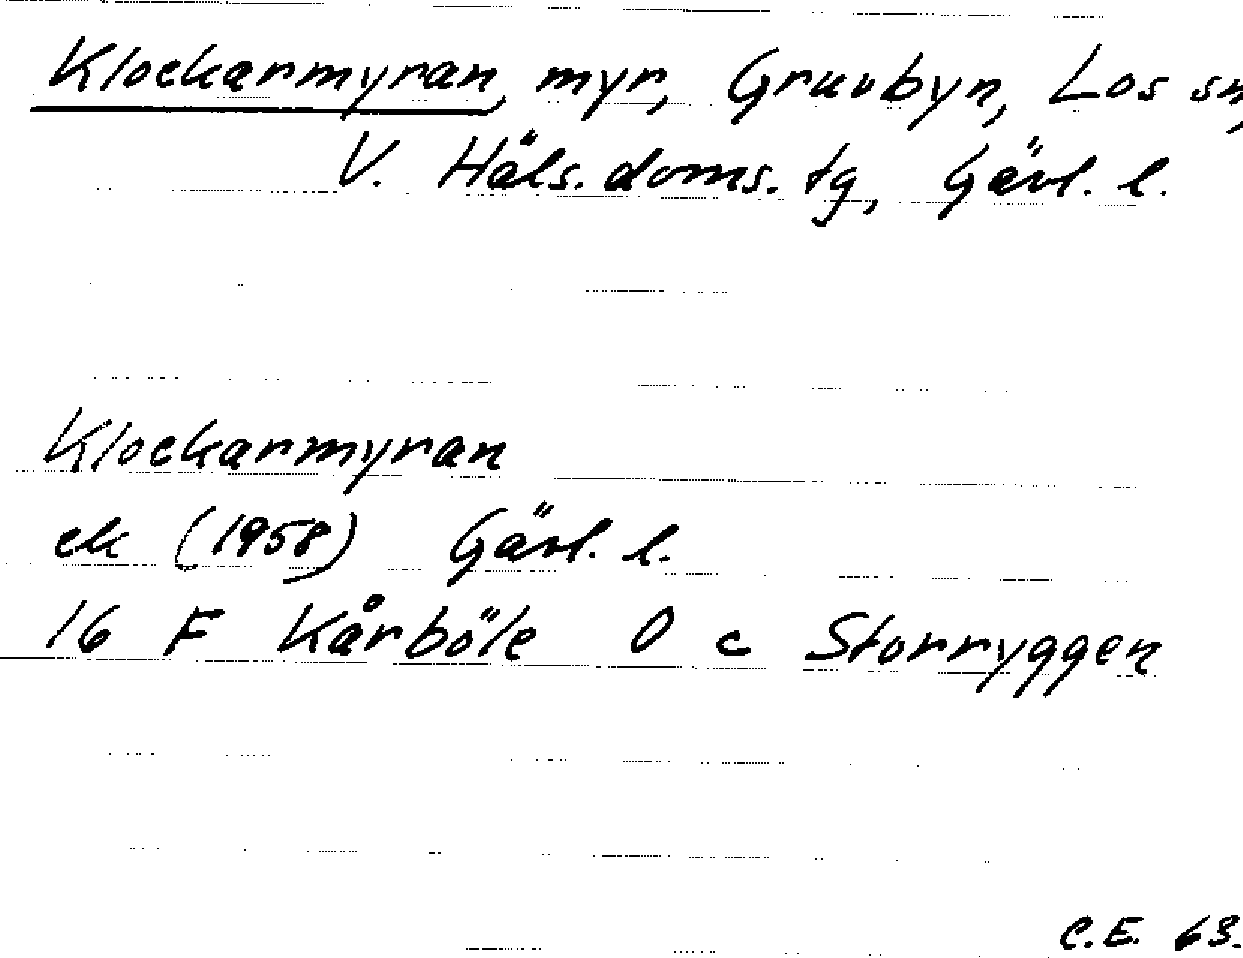 Klockarmyran, myr, Gruvbyn, Los sn,
V. Häls. doms. tg, Gävl. l.
Klockarmyran
ek (1958) Gävl. l.
16 F Kårböle 0 c Storryggen
C.E. 63.